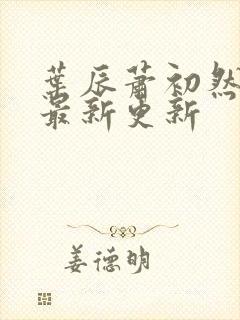 葉辰蕭初然
最新更新
姜德明